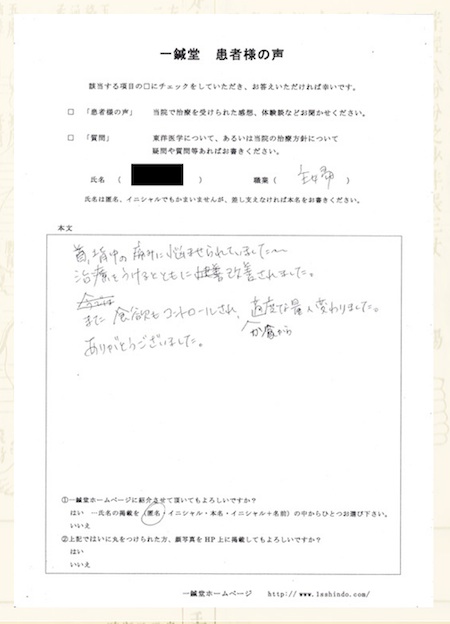 一鍼堂 患者様の声
該当する項目の□にチェックをしていただき、お答えいただければ幸いです。
□ 「患者様の声」 当院で治療を受けられた感想、体験談などお聞かせください。
□ 「質問」 東洋医学について、あるいは当院の治療方針について
疑問や質問等あればお書きください。
氏名 ( ) 職業 ( 主婦 )
氏名は匿名、イニシャルでもかまいませんが、差し支えなければ本名をお書きください。
本文
首、背中の痛みに悩ませられていましたが
治療をうけるとともに改善されました。
また 食欲もコントロールされ、過食から適度な量へ変わりました。
ありがとうございました。
①一鍼堂ホームページに紹介させて頂いてもよろしいですか?
はい ―氏名の掲載を(匿名・イニシャル・本名・イニシャル+名前)の中からひとつお選び下さい。
いいえ
②上記ではいに丸をつけられた方、顔写真をHP上に掲載してもよろしいですか?
はい
いいえ
一鍼堂ホームページ http://www.1sshindo.com/